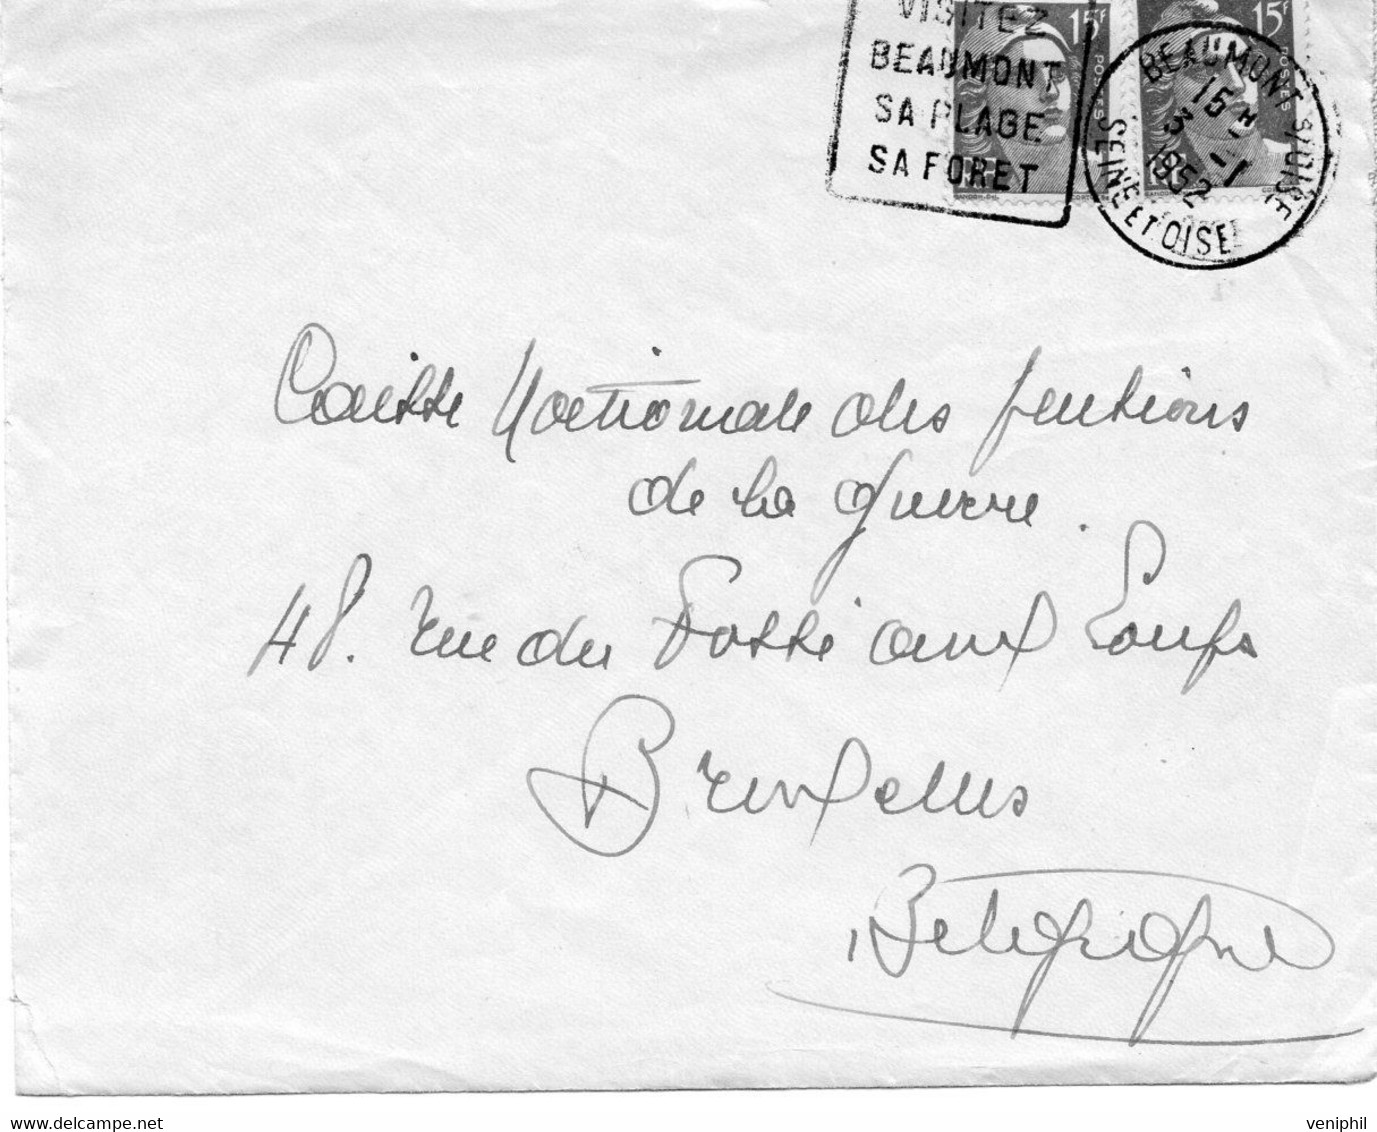 VISITEZ
BEAUMONT
SA PLAGE
SA FORET
15F
POSTES
15F
POSTES
BEAUMONT S/OISE
15 H
3 - 1
1952
SEINE ET OISE
Caisse Nationale des pensions
de la guerre.
48. rue du Fossé aux Loups
Bruxelles
Belgique
www.delcampe.net
veniphil